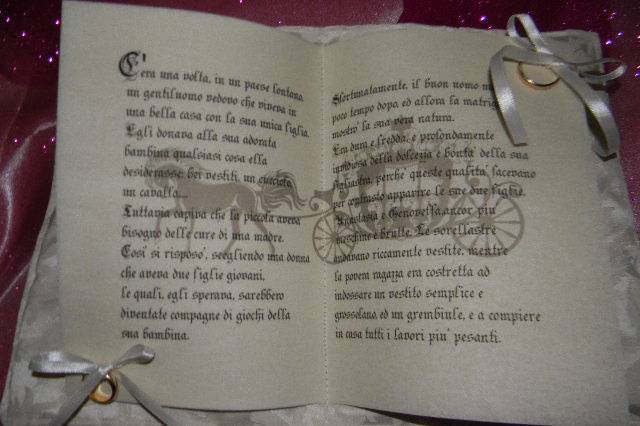 C'era una volta, in un paese lontano,
un gentiluomo vedovo che viveva in
una bella casa con la sua unica figlia.
Egli donava alla sua adorata
bambina qualsiasi cosa ella
desiderasse: bei vestiti, un cucciolo,
un cavallo.
Tuttavia capiva che la piccola aveva
bisogno delle cure di una madre.
Cosi' si risposo', scegliendo una donna
che aveva due figlie giovani,
le quali, egli sperava, sarebbero
diventate compagne di giochi della
sua bambina.
Sfortunatamente, il buon uomo
poco tempo dopo, ed allora la matrig
mostro' la sua vera natura.
Era dura e fredda, e profondamente
invidiosa della dolcezza e bonta' della sua
figliastra, perche' queste qualita' facevano
per contrasto apparire le sue due figlie,
Anastasia e Genoveffa, ancor piu'
meschine e brutte. Le sorellastre
andavano riccamente vestite, mentre
la povera ragazza era costretta ad
indossare un vestito semplice e
grossolano, ed un grembiule, e a compiere
in casa tutti i lavori piu' pesanti.